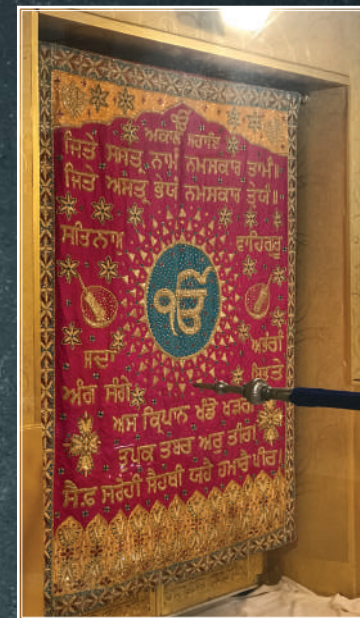 ੴ
ਅਕਾਲ ਸਹਾਇ
ਜਿਤੇ ਸਸਤ੍ਰ ਨਾਮੰ ਨਮਸਕਾਰ ਤਾਮੰ॥
ਜਿਤੇ ਅਸਤ੍ਰ ਭੇਯੰ ਨਮਸਕਾਰ ਤੇਯੰ॥
ਸਤਿਨਾਮ ਵਾਹਿਗੁਰੂ
ੴ
ਸਦਾ
ਅੰਗ ਸੰਗੇ
ਅਸ ਕ੍ਰਿਪਾਨ ਖੰਡੋ ਖੜਗ
ਤੁਪਕ ਤਬਰ ਅਰੁ ਤੀਰ।
ਸੈਫ ਸਰੋਹੀ ਸੈਹਥੀ ਯਹੈ ਹਮਾਰੈ ਪੀਰ।